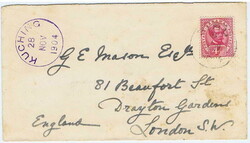 KUCHING
28
NOV
1904
G E Mason Esqre
81 Beaufort St
Drayton Gardens
London S.W.
England